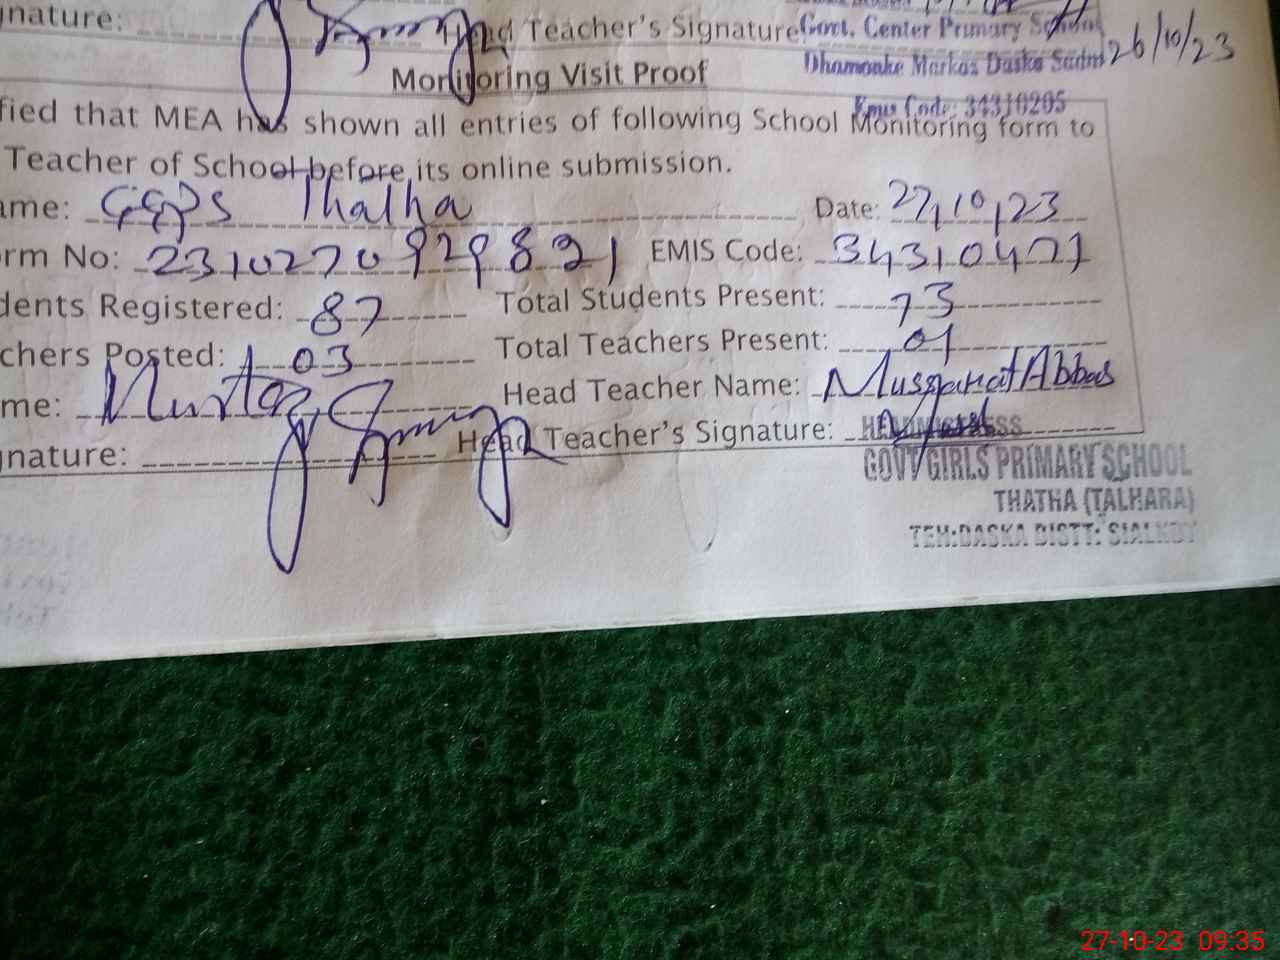 nature: Head Teacher's Signature Govt. Center Primary School
Dhamonke Markaz Daska 26/10/23
Monitoring Visit Proof
Emis Code: 34310205
fied that MEA has shown all entries of following School Monitoring form to
Teacher of School before its online submission.
ame: GGPS Thatha Date: 27/10/23
rm No: 2310270929821 EMIS Code: 34310477
dents Registered: 87 Total Students Present: 73
chers Posted: 03 Total Teachers Present: 01
me: Murtaza Head Teacher Name: Mussarat Abbas
nature: Head Teacher's Signature:
HEADMISTRESS
GOVT GIRLS PRIMARY SCHOOL
THATHA (TALHARA)
TEH: DASKA DISTT: SIALKOT
27-10-23 09:35